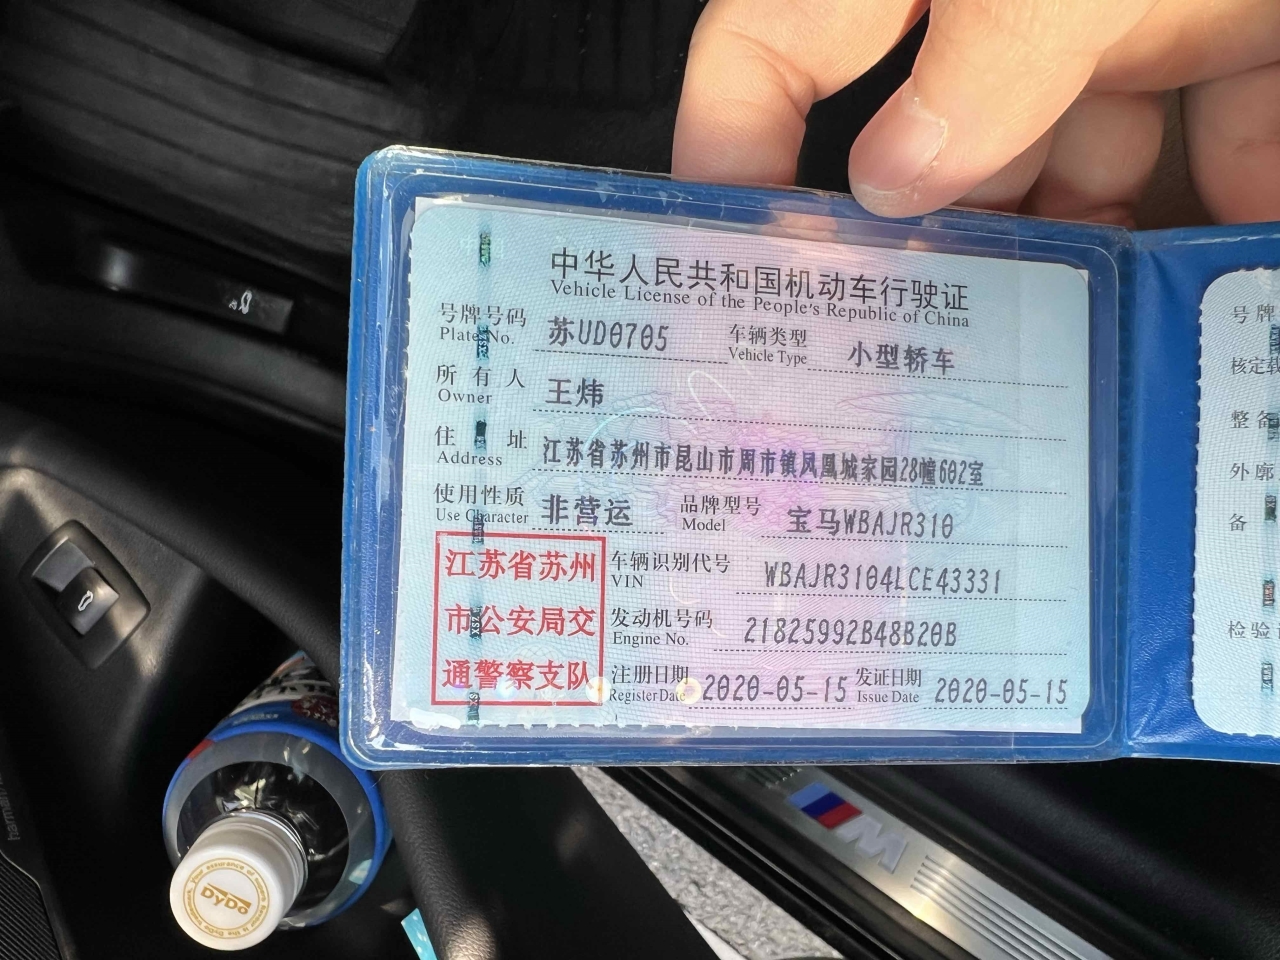 中华人民共和国机动车行驶证
Vehicle License of the People's Republic of China
号牌号码 苏UD0705 车辆类型 小型轿车
Plate No. Vehicle Type
所有人 王炜
Owner
住址 江苏省苏州市昆山市周市镇凤凰城家园28幢602室
Address
使用性质 非营运 品牌型号 宝马WBAJR310
Use Character Model
江苏省苏州
市公安局交
通警察支队
车辆识别代号 WBAJR3104LCE43331
VIN
发动机号码 21825992B48B20B
Engine No.
注册日期 2020-05-15 发证日期 2020-05-15
Register Date Issue Date
号牌
核定载
整备
外廓
备
检验
DyDo
M
harman